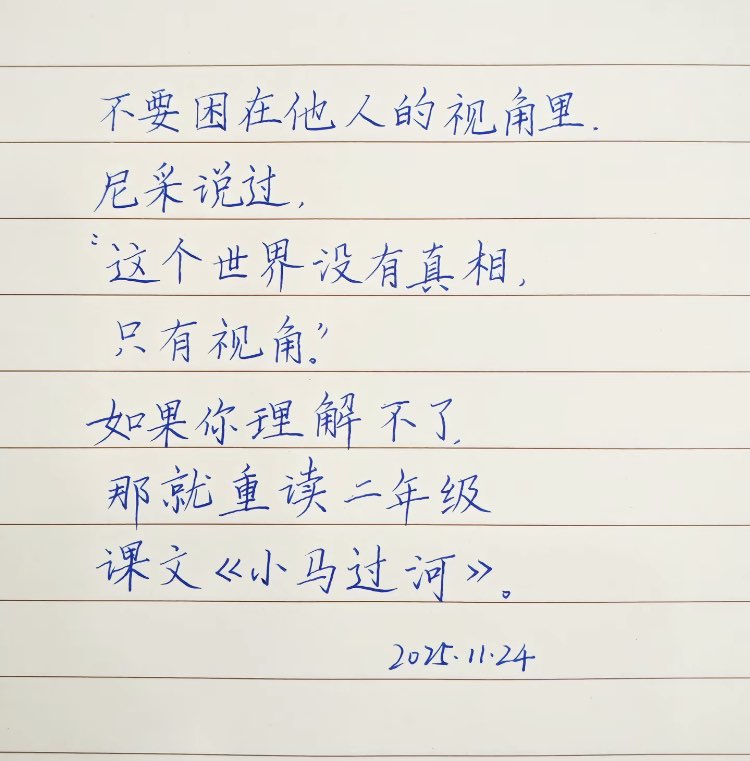 不要困在他人的视角里.
尼采说过,
“这个世界没有真相,
只有视角。”
如果你理解不了,
那就重读二年级
课文《小马过河》。
2025.11.24